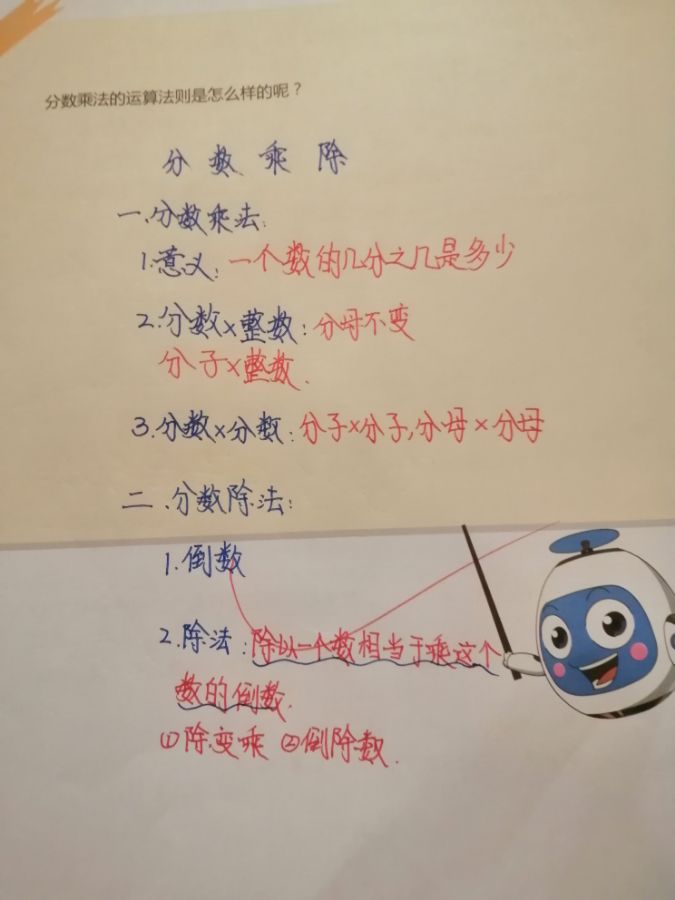 分数乘法的运算法则是怎么样的呢？
分数乘除
一.分数乘法:
1.意义:一个数的几分之几是多少
2.分数×整数:分母不变
分子×整数.
3.分数×分数:分子×分子,分母×分母
二.分数除法:
1.倒数
2.除法:除以一个数相当于乘这个
数的倒数.
①除变乘 ②倒除数.